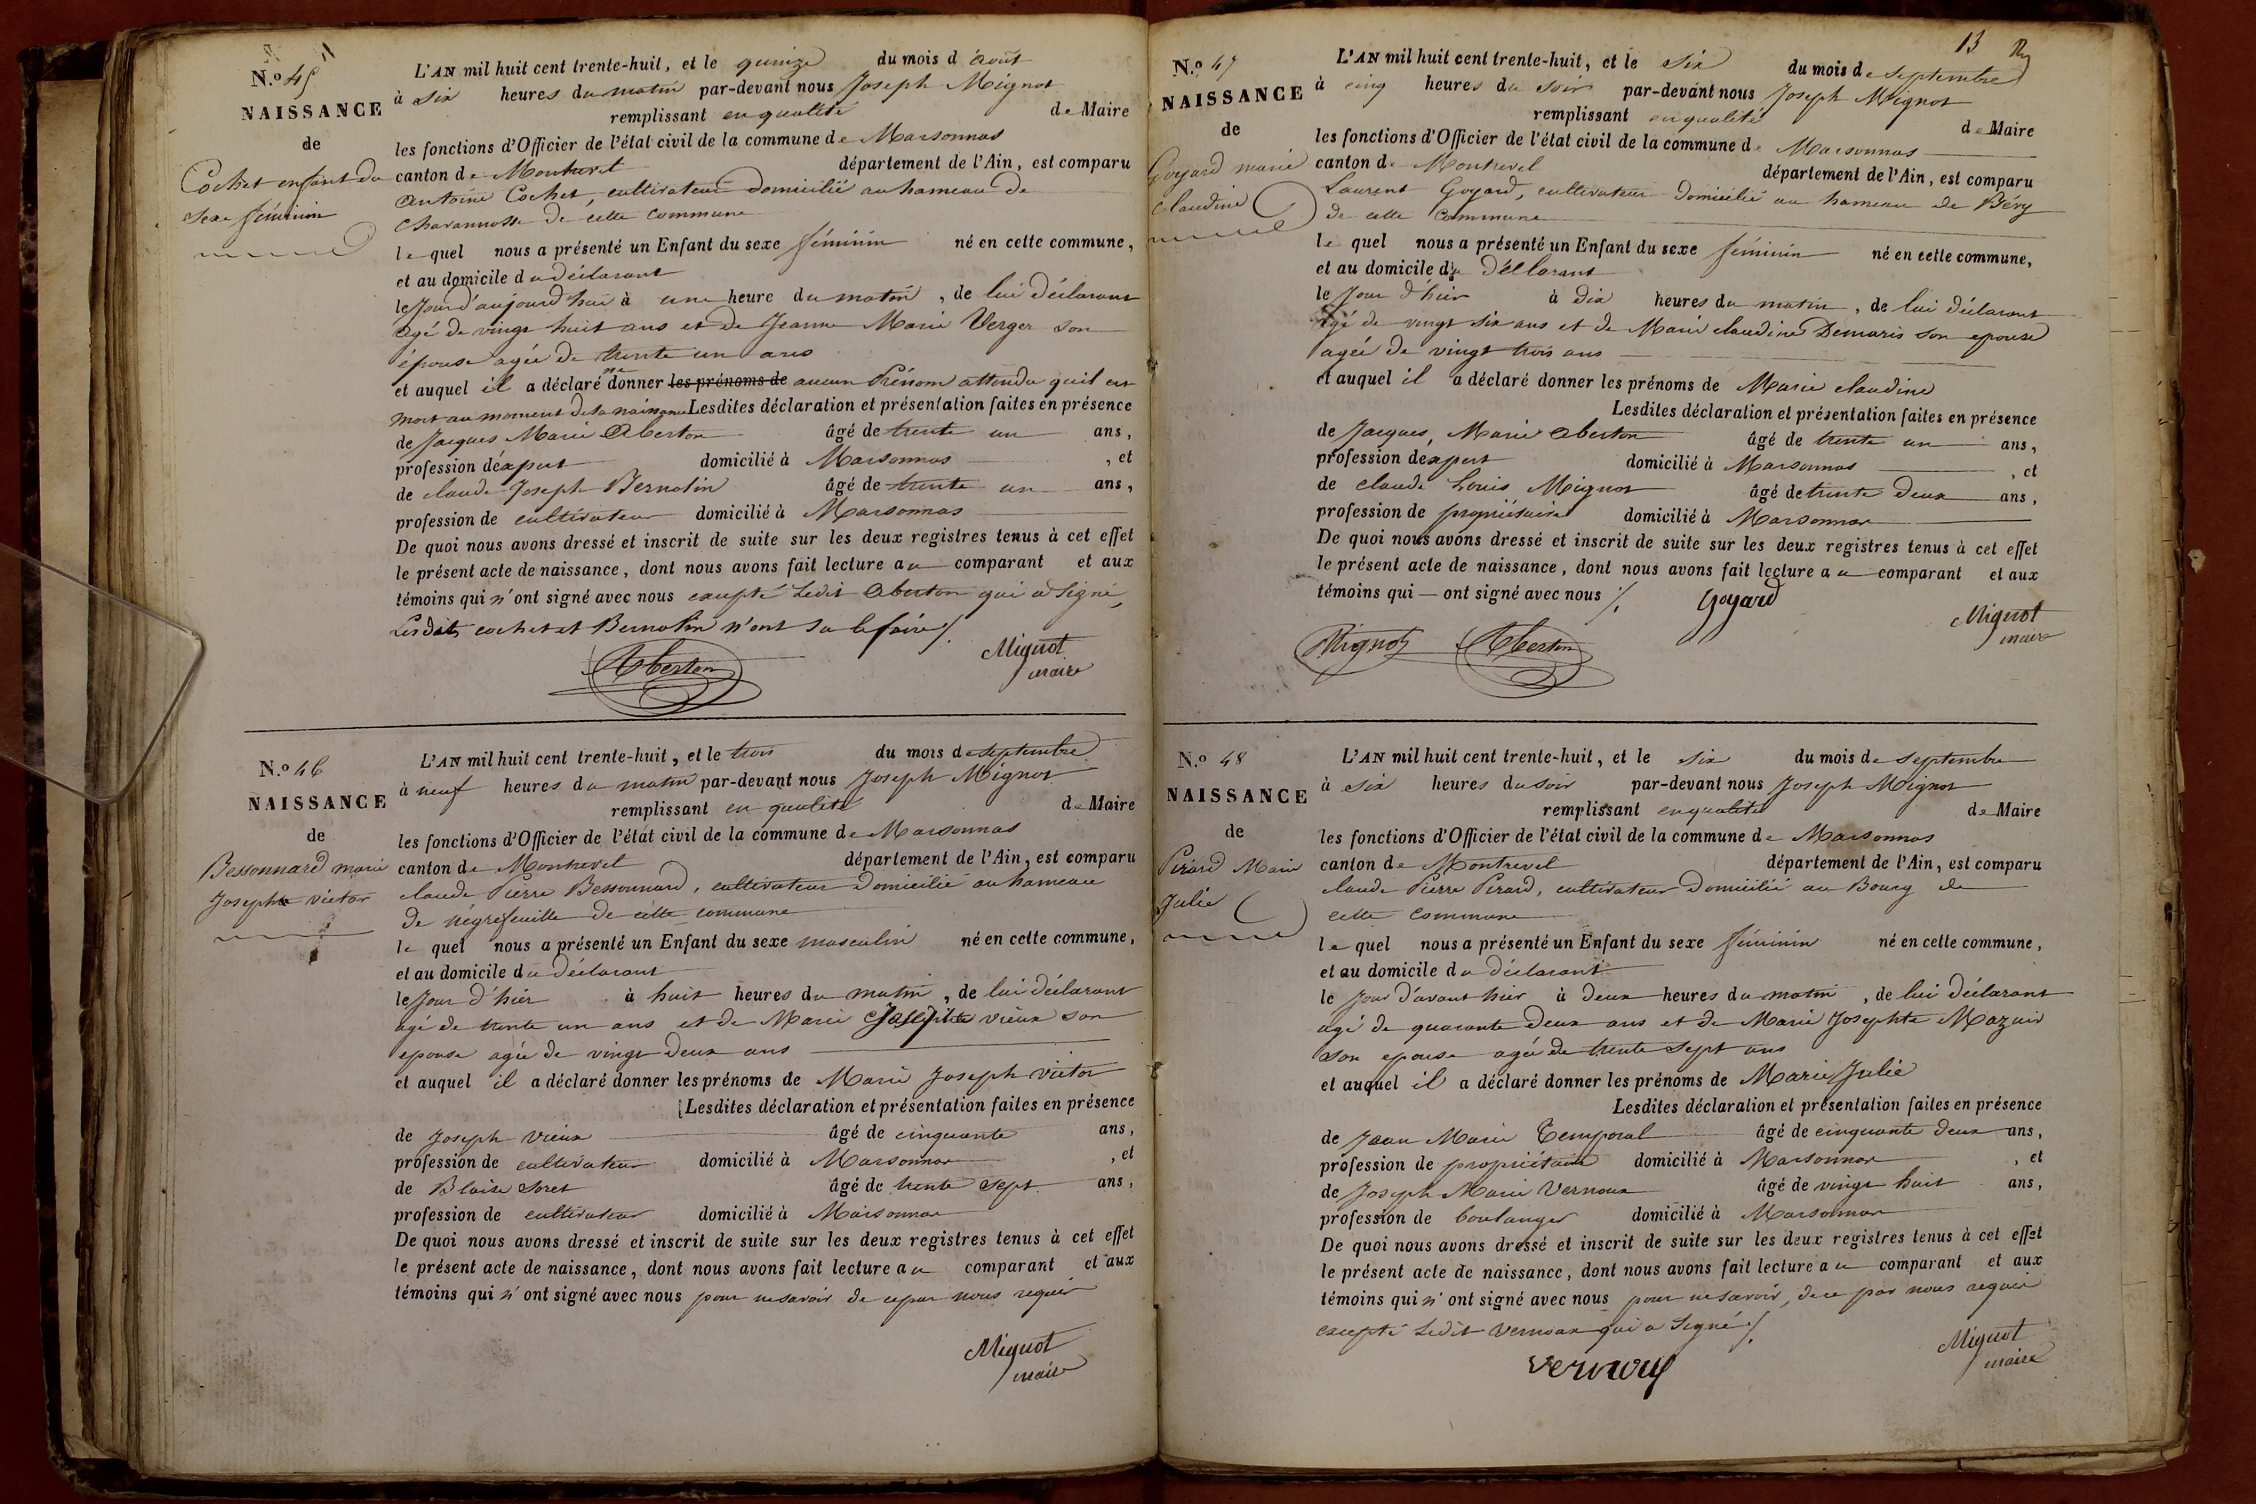 N.º 45
NAISSANCE
de
Cochet enfant du
sexe féminin
L'AN mil huit cent trente-huit, et le quinze du mois d'août
à six heures du matin par-devant nous Joseph Mignot
remplissant en qualité de Maire
les fonctions d'Officier de l'état civil de la commune de Marsonnas
canton de Montrevel département de l'Ain, est comparu
Antoine Cochet, cultivateur domicilié au hameau de
Charannosse de cette commune
le quel nous a présenté un Enfant du sexe féminin né en cette commune,
et au domicile du déclarant
le Jour d'aujourd'hui à une heure du matin, de lui déclarant
agé de vingt huit ans et de Jeanne Marie Verger son
épouse agée de trente un ans
et auquel il a déclaré ne donner les prénoms de aucun Prénom attendu quil est
mort au moment de sa naissance Lesdites déclaration et présentation faites en présence
de Jacques Marie Aberton âgé de trente un ans,
profession d'expert domicilié à Marsonnas, et
de claude Joseph Bernolin âgé de trente un ans,
profession de cultivateur domicilié à Marsonnas
De quoi nous avons dressé et inscrit de suite sur les deux registres tenus à cet effet
le présent acte de naissance, dont nous avons fait lecture au comparant et aux
témoins qui n'ont signé avec nous excepté Ledit Aberton qui a signé,
Lesdits cochet et Bernolin n'ont su le faire ./.
Aberton
Mignot
maire
N.º 46
NAISSANCE
de
Bessonnard marie
Joseph victor
L'AN mil huit cent trente-huit, et le trois du mois de septembre
à neuf heures du matin par-devant nous Joseph Mignot
remplissant en qualité de Maire
les fonctions d'Officier de l'état civil de la commune de Marsonnas
canton de Montrevel département de l'Ain, est comparu
claude Pierre Bessonnard, cultivateur domicilié au hameau
de négrefeuille de cette commune
le quel nous a présenté un Enfant du sexe masculin né en cette commune,
et au domicile du déclarant
le Jour d'hier à huit heures du matin, de lui déclarant
agé de trente un ans et de Marie Josephte vieux son
epouse agée de vingt deux ans
et auquel il a déclaré donner les prénoms de Marie Joseph victor
Lesdites déclaration et présentation faites en présence
de Joseph vieux âgé de cinquante ans,
profession de cultivateur domicilié à Marsonnas, et
de Blaise Soret âgé de trente sept ans,
profession de cultivateur domicilié à Marsonnas
De quoi nous avons dressé et inscrit de suite sur les deux registres tenus à cet effet
le présent acte de naissance, dont nous avons fait lecture au comparant et aux
témoins qui n'ont signé avec nous pour ne savoir de ce par nous requis
Mignot
maire
13
N.º 47
NAISSANCE
de
Goyard marie
claudine
L'AN mil huit cent trente-huit, et le six du mois de septembre
à cinq heures du soir par-devant nous Joseph Mignot
remplissant en qualité de Maire
les fonctions d'Officier de l'état civil de la commune de Marsonnas
canton de Montrevel département de l'Ain, est comparu
Laurent Goyard, cultivateur domicilié au hameau de Béry
de cette commune
le quel nous a présenté un Enfant du sexe féminin né en cette commune,
et au domicile du Déclarant
le Jour d'hier à dix heures du matin, de lui déclarant
agé de vingt six ans et de Marie claudine Demaris son epouse
agée de vingt trois ans
et auquel il a déclaré donner les prénoms de Marie claudine
Lesdites déclaration et présentation faites en présence
de Jacques, Marie Aberton âgé de trente un ans,
profession d'expert domicilié à Marsonnas, et
de claude Louis Mignot âgé de trente deux ans,
profession de propriétaire domicilié à Marsonnas
De quoi nous avons dressé et inscrit de suite sur les deux registres tenus à cet effet
le présent acte de naissance, dont nous avons fait lecture au comparant et aux
témoins qui — ont signé avec nous ./.
Goyard
Mignot
maire
Mignot Aberton
N.º 48
NAISSANCE
de
Pirard Marie
Julie
L'AN mil huit cent trente-huit, et le six du mois de septembre
à six heures du soir par-devant nous Joseph Mignot
remplissant en qualité de Maire
les fonctions d'Officier de l'état civil de la commune de Marsonnas
canton de Montrevel département de l'Ain, est comparu
claude Pierre Pirard, cultivateur domicilié au Bourg de
cette commune
le quel nous a présenté un Enfant du sexe féminin né en cette commune,
et au domicile du déclarant
le Jour d'avant hier à deux heures du matin, de lui déclarant
agé de quarante deux ans et de Marie Josephte Mazuir
son epouse agée de trente sept ans
et auquel il a déclaré donner les prénoms de Marie Julie
Lesdites déclaration et présentation faites en présence
de Jean Marie Temporal âgé de cinquante deux ans,
profession de propriétaire domicilié à Marsonnas, et
de Joseph Marie Vernoux âgé de vingt huit ans,
profession de boulanger domicilié à Marsonnas
De quoi nous avons dressé et inscrit de suite sur les deux registres tenus à cet effet
le présent acte de naissance, dont nous avons fait lecture au comparant et aux
témoins qui n'ont signé avec nous pour ne savoir, de ce par nous requis
excepté Ledit Vernoux qui a signé ./.
vernoux
Mignot
maire